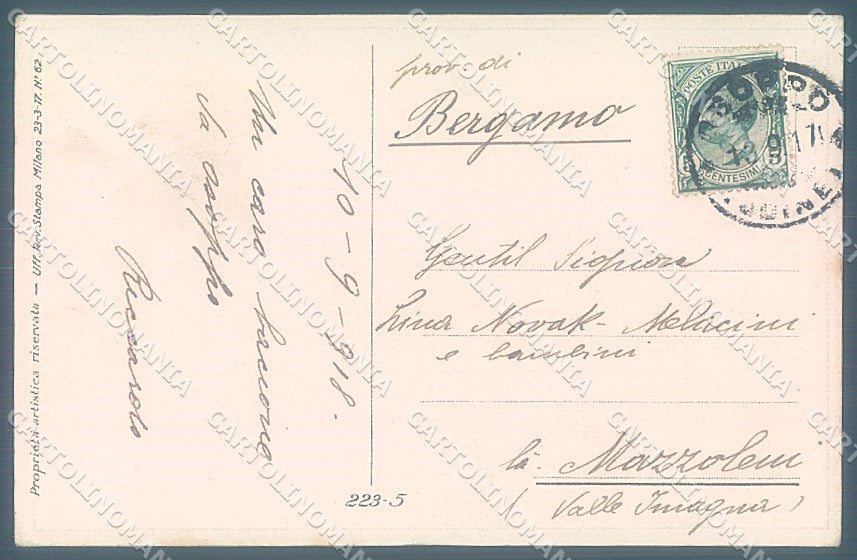 Proprietà artistica riservata — Uff. Rev. Stampa Milano 23-3-17. N° 62
10-9-918.
Un caro bacione
da
Riccardo
223-5
prov. di
Bergamo
POSTE ITAL
CENTESIMI
Gentil Signora
Lina Novak-Melacini
e bambini
là. Mazzoleni
(Valle Imagna)
CARTOLINOMANIA